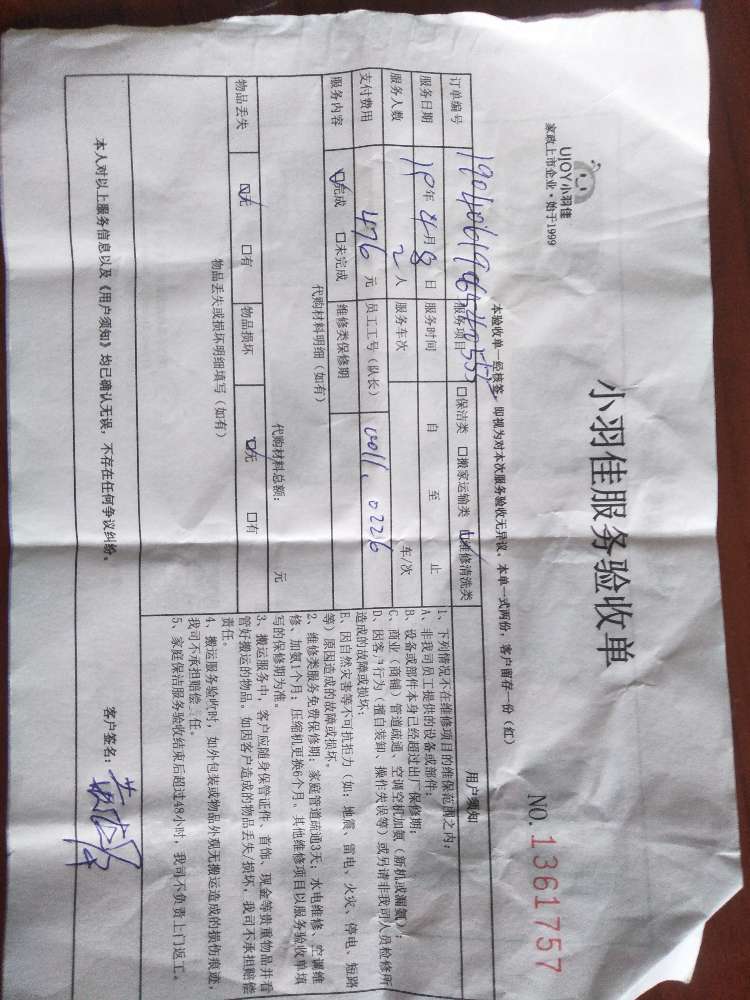 UJOY小羽佳
家政上市企业·始于1999
小羽佳服务验收单
NO.1361757
本验收单一经核签，即视为对本次服务验收无异议，本单一式两份，客户留存一份（红）
订单编号
服务项目 口保洁类 口搬家运输类 口维修清洗类
服务日期 19年4月8日 服务时间 自 至 止
服务人数 2人 服务车次 车/次
支付费用 476元 员工工号（队长） 0011、0226
服务内容 口完成 口未完成 维修类保修期
代购材料明细（如有）
代购材料总额： 元
物品丢失 口无 口有 物品损坏 口无 口有
物品丢失或损坏明细填写（如有）
用户须知
1、下列情况不在维修项目的维保范围之内：
A、非我司员工提供的设备或部件；
B、设备或部件本身已经超过出厂保修期；
C、商业（商铺）管道疏通、空调空机加氨（新机或漏氨）；
D、因客户行为（擅自装卸、操作失误等）或另请非我司人员检修所
造成的故障或损坏；
E、因自然灾害等不可抗拒力（如：地震、雷电、火灾、停电、短路
等）原因造成的故障或损坏。
2、维修类服务免费保修期：家庭管道疏通3天；水电维修、空调维
修、加氨1个月；压缩机更换6个月。其他维修项目以服务验收单填
写的保修期为准。
3、搬运服务中，客户应随身保管证件、首饰、现金等贵重物品并看
管好搬运的物品。如因客户造成的物品丢失/损坏，我司不承担赔偿
责任。
4、搬运服务验收时，如外包装或物品外观无搬运造成的损伤痕迹，
我司不承担赔偿责任。
5、家庭保洁服务验收结束后超过48小时，我司不负责上门返工。
本人对以上服务信息以及《用户须知》均已确认无误，不存在任何争议纠纷。
客户签名：